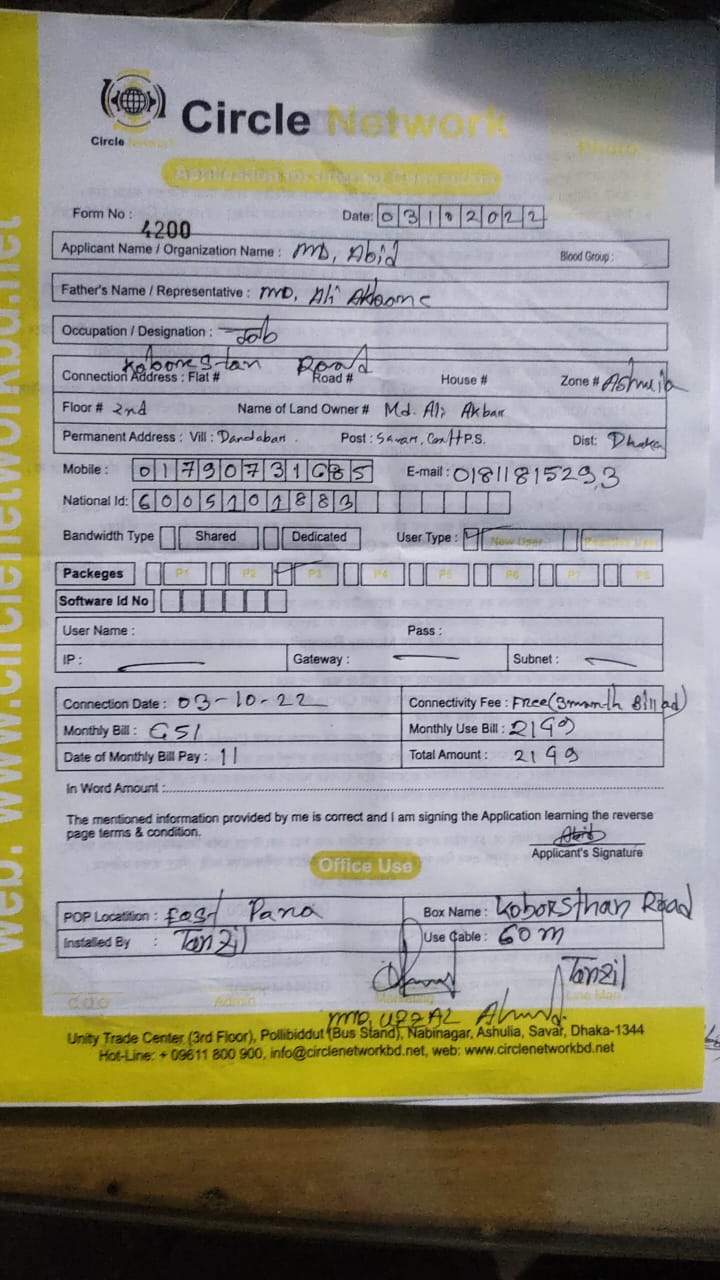 Circle Network
Circle Network
Photo
Application for Internet Connection
Form No : 4200 Date: 03102022
Applicant Name / Organization Name : MD, Abid Blood Group :
Father's Name / Representative : MD, Ali
Occupation / Designation : Job
Kaborestan Road
Connection Address : Flat # Road # House # Zone # Ashulia
Floor # 2nd Name of Land Owner # Md. Ali Akbar
Permanent Address : Vill : Dandabari. Post : Savar, Cantt P.S. Dist: Dhaka
Mobile : 01790731685 E-mail : 01811815293
National Id: 6005101883
Bandwidth Type Shared Dedicated User Type : New User
Packeges P1 P2 P3 P4 P5 P6 P7 P8
Software Id No
User Name : Pass :
IP : Gateway : Subnet :
Connection Date : 03-10-22 Connectivity Fee : Free (3 month Bill ad)
Monthly Bill : Monthly Use Bill :
Date of Monthly Bill Pay : 11 Total Amount :
In Word Amount :
The mentioned information provided by me is correct and I am signing the Application learning the reverse
page terms & condition.
Abid
Applicant's Signature
Office Use
POP Locatition : East Para Box Name : Koborsthan Road
Installed By : Tanzil Use Cable : 60 m
Tanzil
C O O Admin Marketing Line Man
Unity Trade Center (3rd Floor), Pollibiddut (Bus Stand), Nabinagar, Ashulia, Savar, Dhaka-1344
Hot-Line: + 09611 800 900, info@circlenetworkbd.net, web: www.circlenetworkbd.net
web: www.circlenetworkbd.net